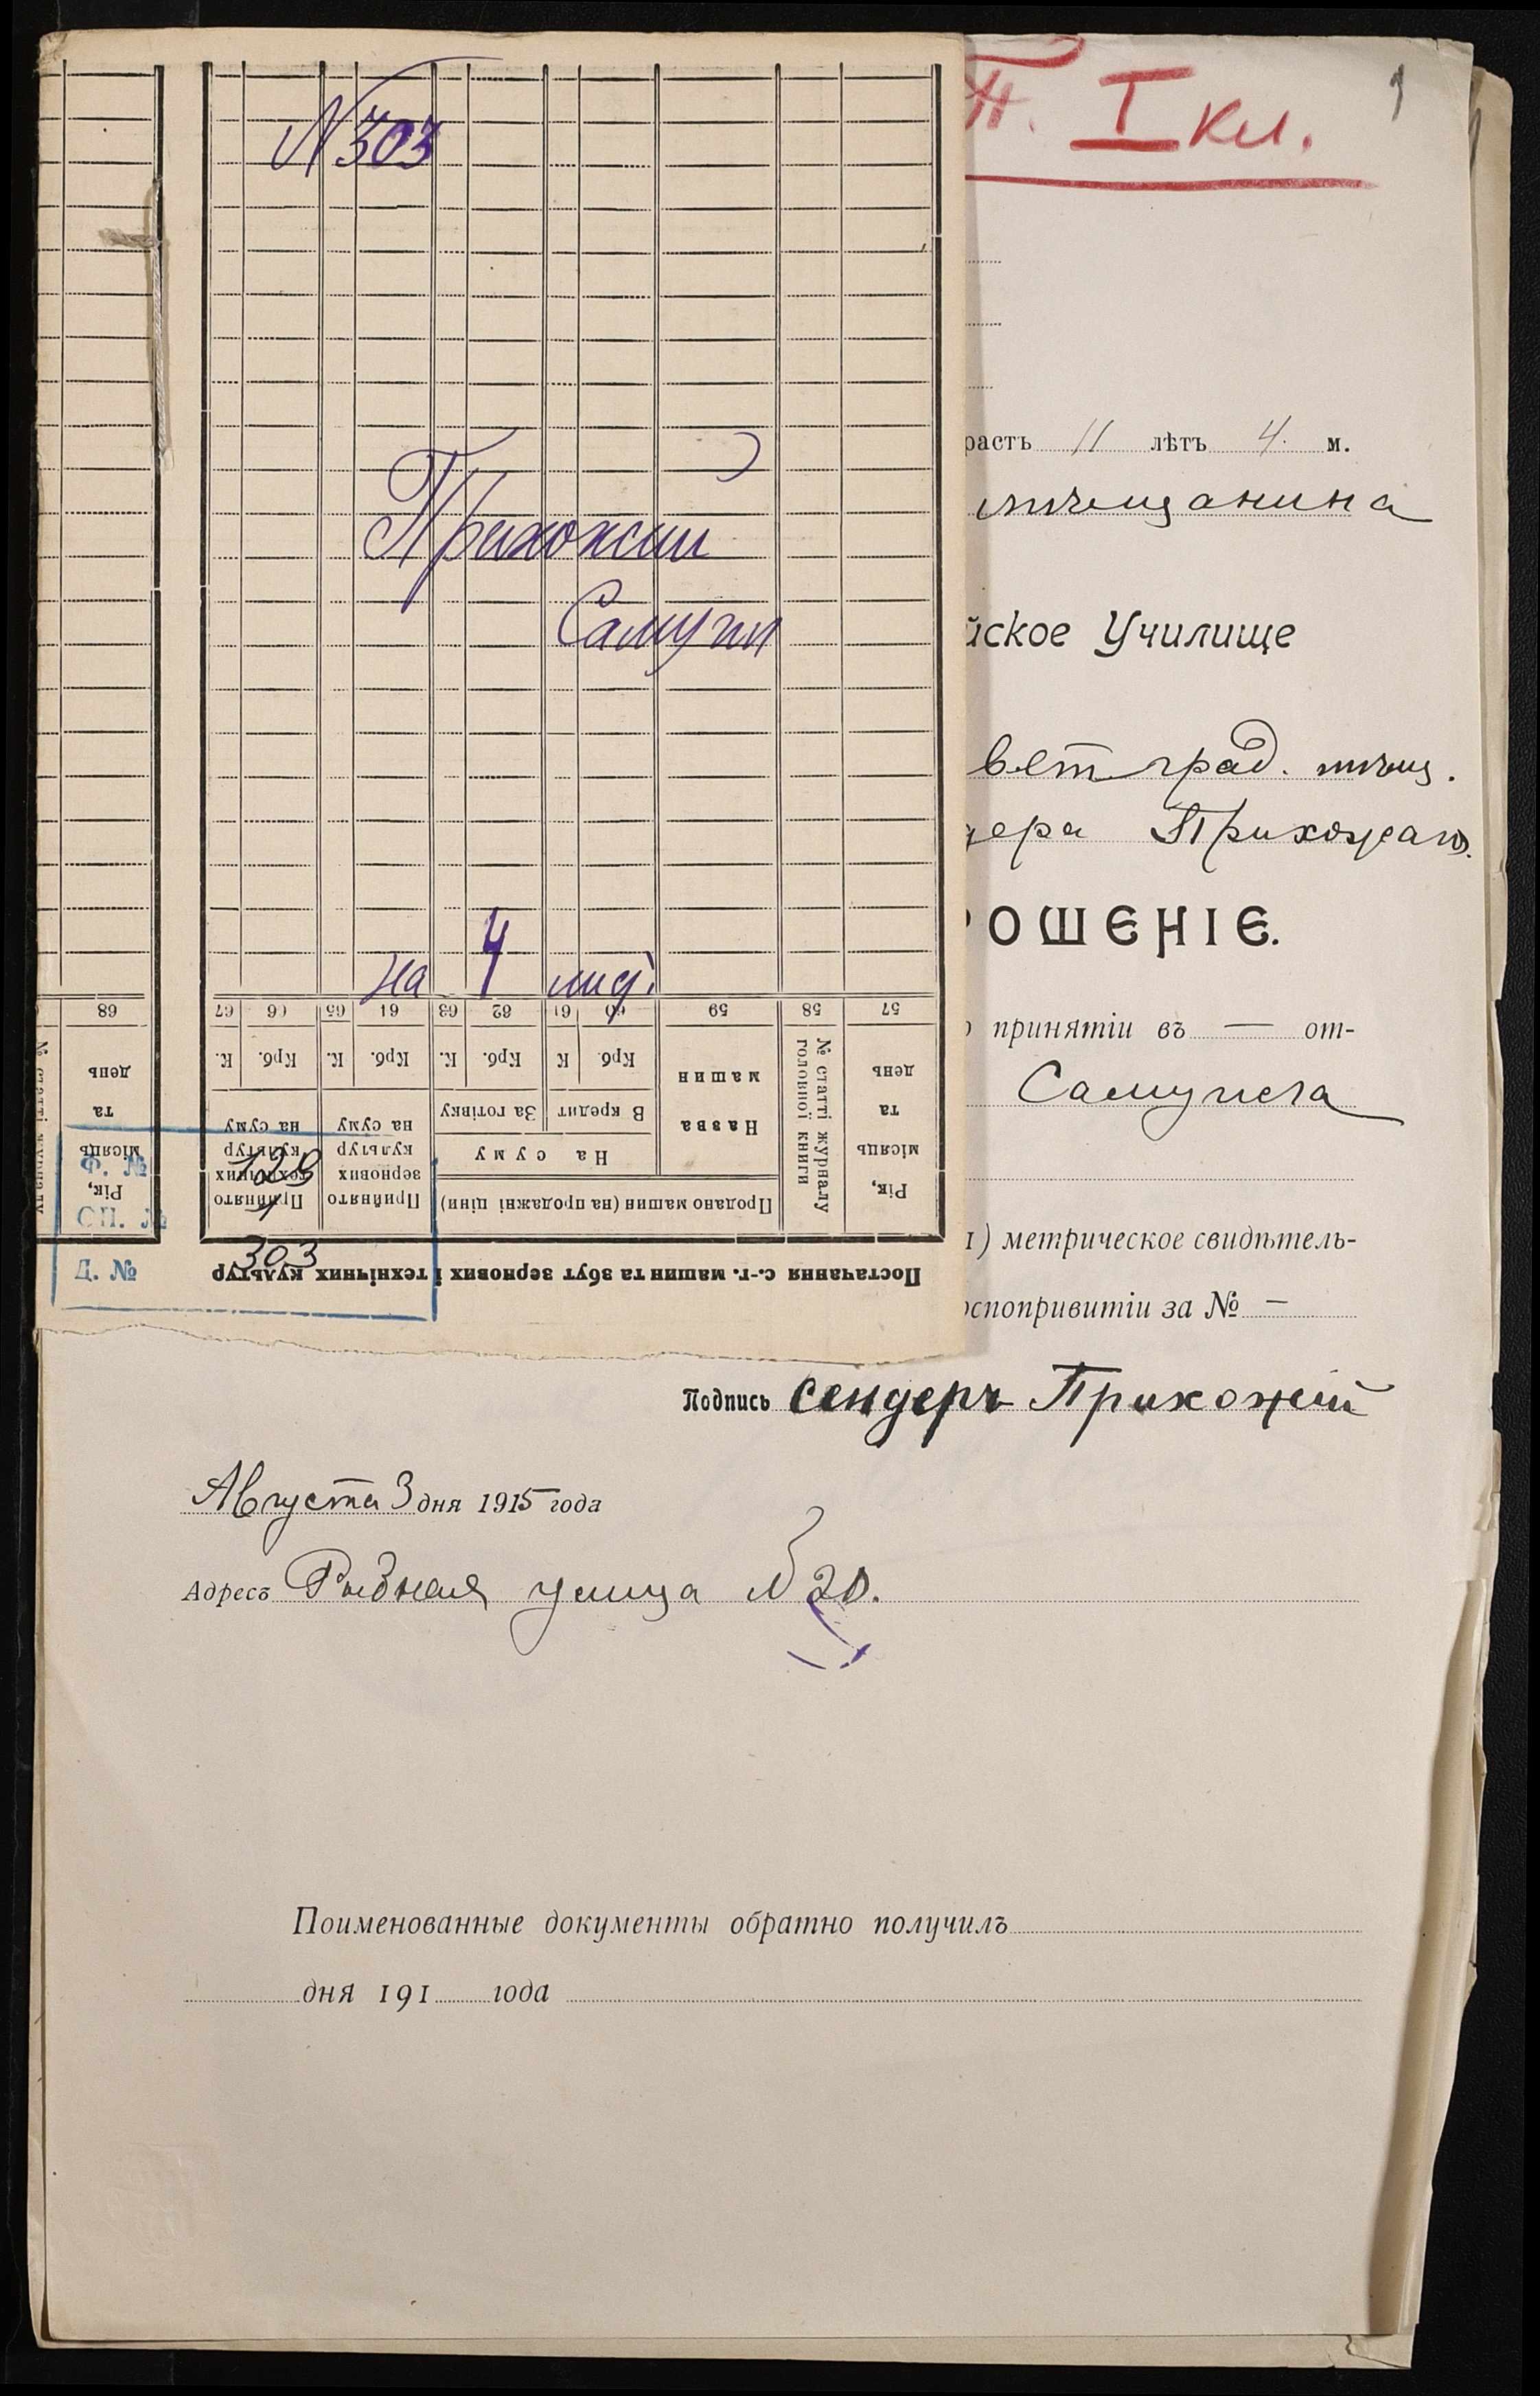 № 303
Прихожий
Самуил
на 4 лист.
57 58 59 60 61 62 63 64 65 66 67
68
Рік, місяць та день
№ статті журналу головної книги
Назва машин
В кредит
За готівку
Крб. К. Крб. К. Крб. К. Крб. К.
На суму
Продано машин (на продажні ціни)
Прийнято зернових культур на суму
Прийнято технічних культур на суму
Рік, місяць та день
№ статті журналу
Постачання с.-г. машин та збут зернових і технічних культур
Ф. № 129
ОП. № 1
Д. № 303
I кл.
1
растъ 11 лѣтъ 4. м.
мѣщанина
йское Училище
ветград. мѣщ.
дера Прихожаго.
РОШЕНІЕ.
о принятіи въ — от-
Самуила
1) метрическое свидѣтель-
оспопривитіи за № —
Подпись Сендеръ Прихожій
Августа 3 дня 1915 года
Адресъ Рыбная улица № 20.
Поименованные документы обратно получилъ
дня 191 года